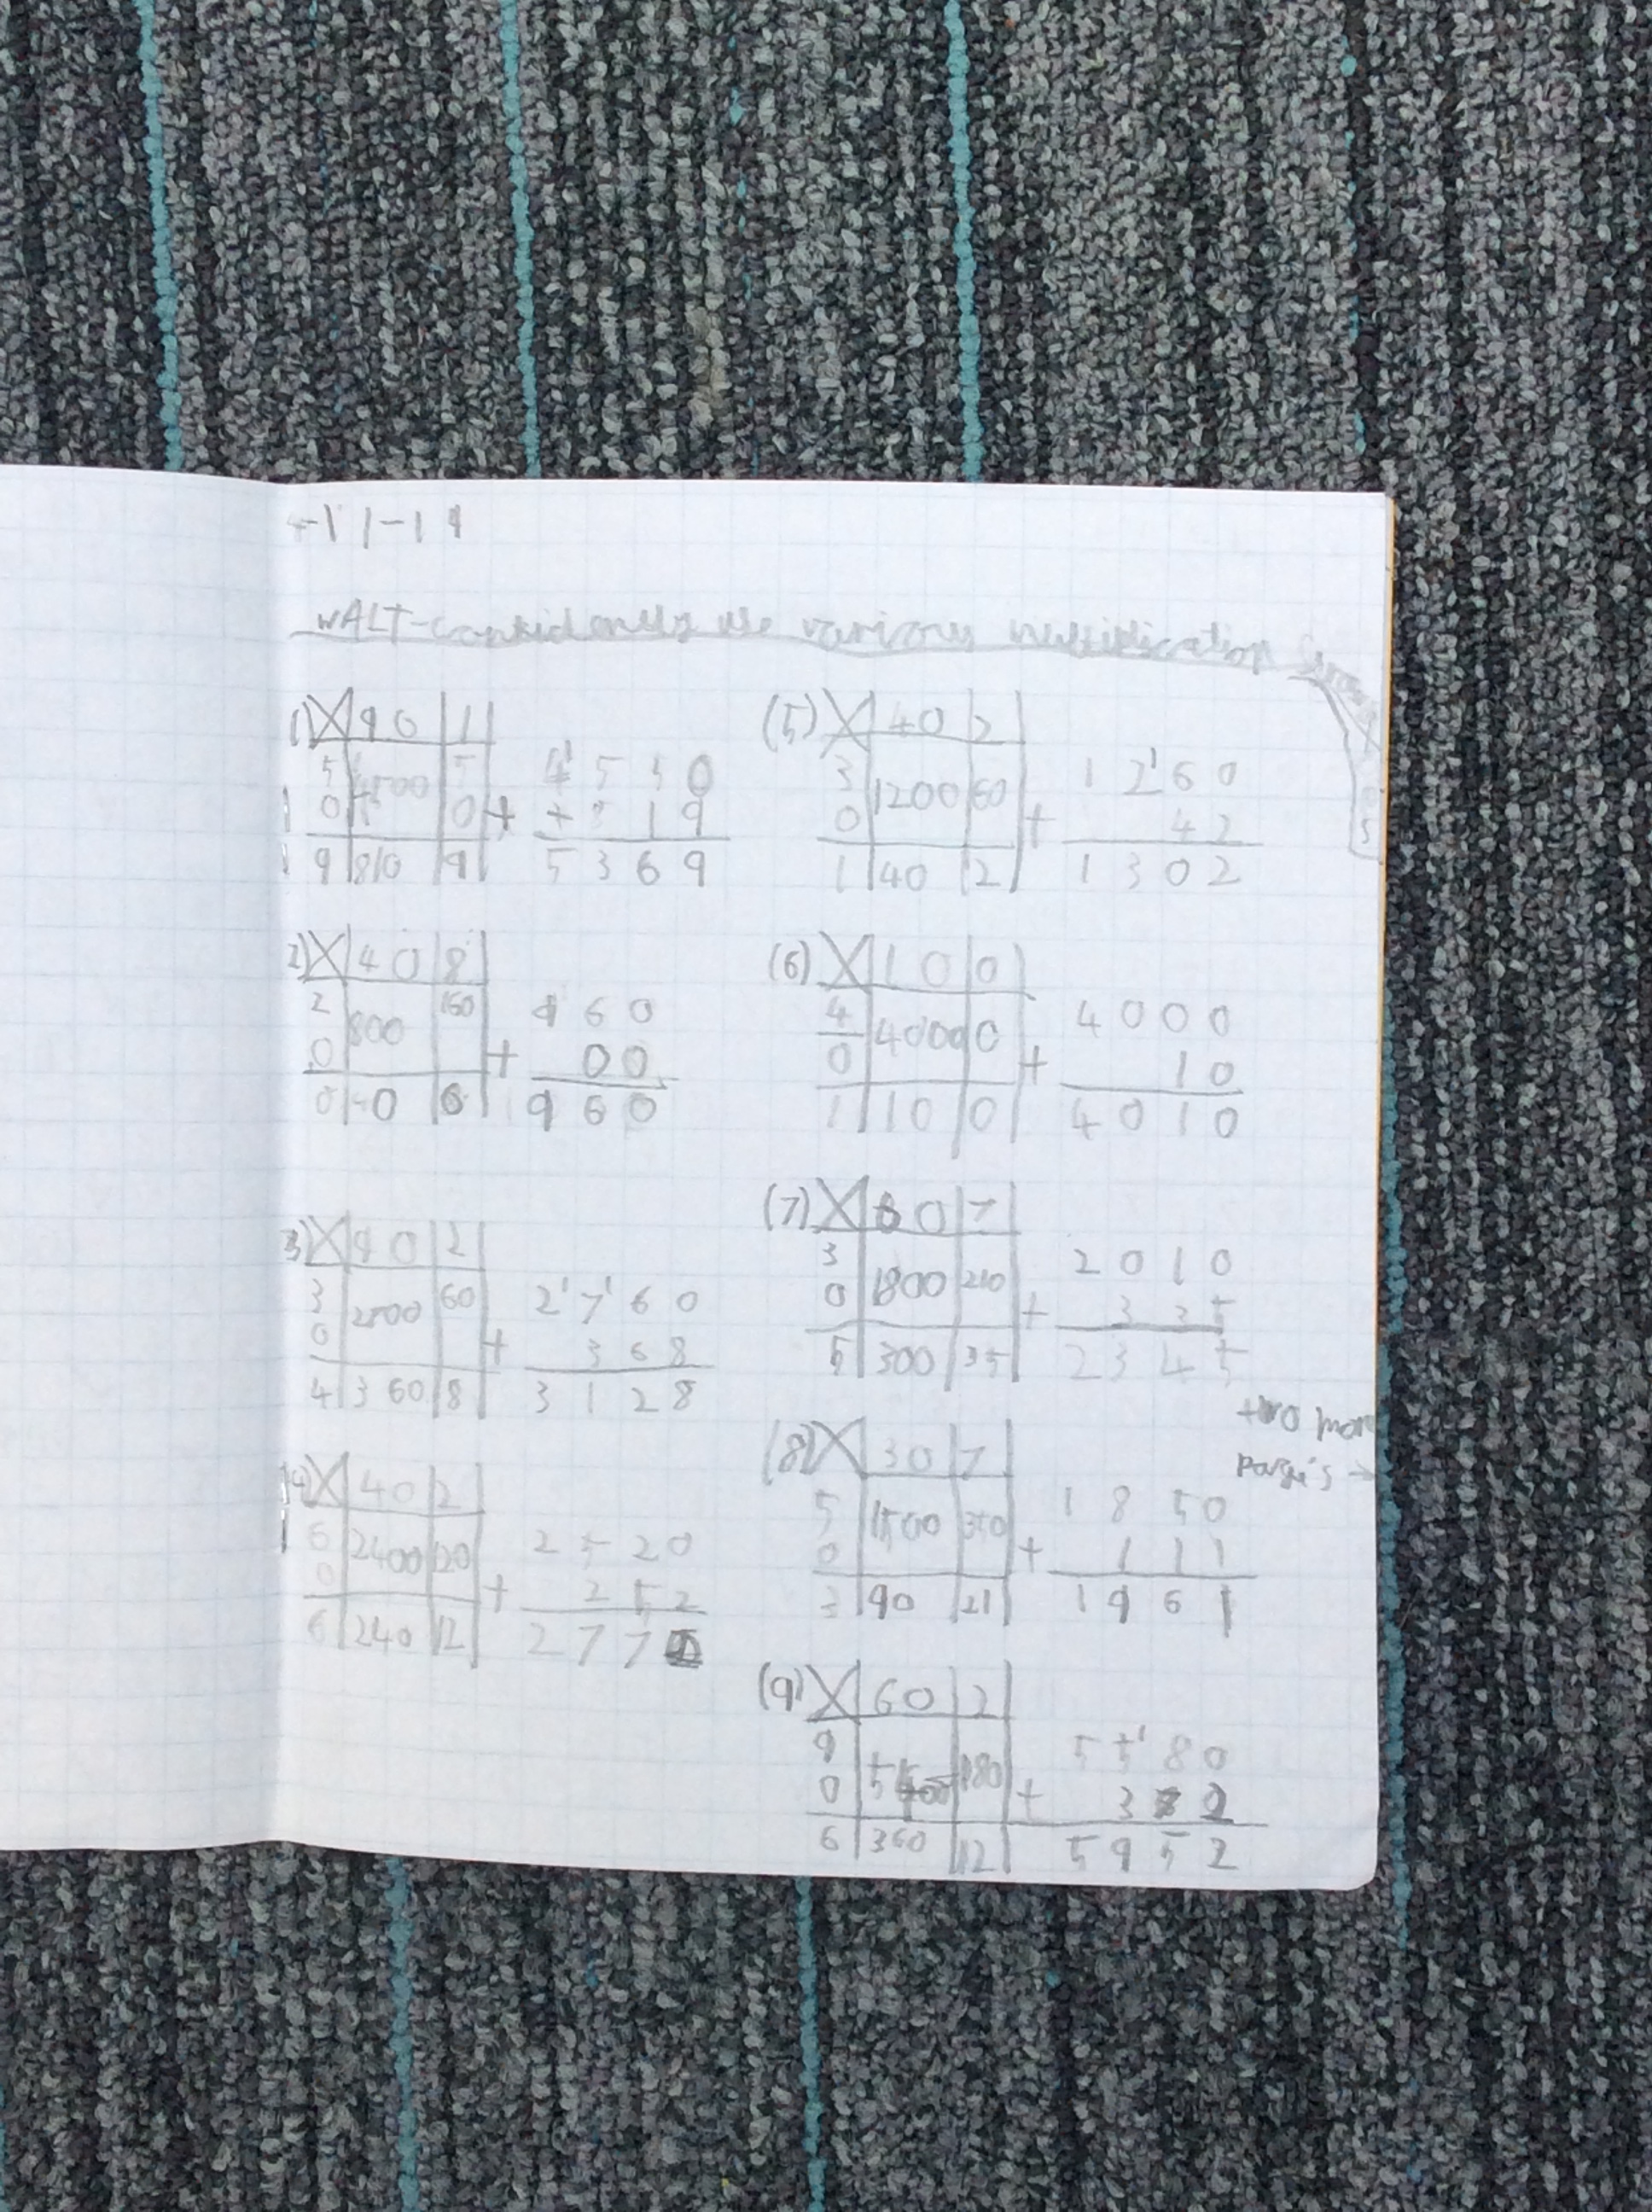 WALT-confidently use various multiplication
1) X 90 1
50 4500 50
9 810 9
4550
+ 819
5369
2) X 40 8
20 800 160
0 0
960
+ 00
960
3) X 90 2
30 2700 60
4 360 8
2760
+ 368
3128
4) X 40 2
60 2400 120
6 240 12
2520
+ 252
277
(5) X 40 2
30 1200 60
1 40 2
1260
+ 42
1302
(6) X 10 0
40 4000 0
1 10 0
4000
+ 10
4010
(7) X 60 7
30 1800 210
5 300 35
2010
+ 335
2345
two more
(8) X 30 7
50 1500 350
3 90 21
1850
+ 111
1961
(9) X 60 2
90 5400 180
6 360 12
5580
+ 372
5952